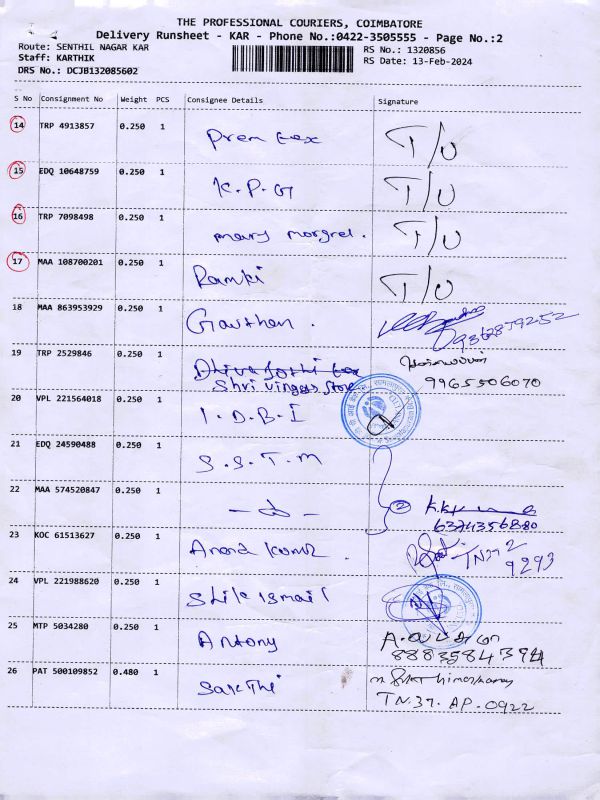 THE PROFESSIONAL COURIERS, COIMBATORE
Delivery Runsheet - KAR - Phone No.:0422-3505555 - Page No.:2
Route: SENTHIL NAGAR KAR
RS No.: 1320856
Staff: KARTHIK
RS Date: 13-Feb-2024
DRS No.: DCJB132085602
S No Consignment No Weight PCS Consignee Details Signature
14 TRP 4913857 0.250 1 Prem tex T/U
15 EDQ 10648759 0.250 1 K.P.G T/U
16 TRP 7098498 0.250 1 mary morgret. T/U
17 MAA 108700201 0.250 1 Ramki T/U
18 MAA 863953929 0.250 1 Gauthan. 9362879252
19 TRP 2529846 0.250 1 Shri Vinggs Store
9965506070
20 VPL 221564018 0.250 1 I.D.B.I
21 EDQ 24590488 0.250 1 S.S.T.M
22 MAA 574520847 0.250 1 2
6374356880
23 KOC 61513627 0.250 1 Anand kumar. TN37 2
9293
24 VPL 221988620 0.250 1
25 MTP 5034280 0.250 1 Antony
8883584394
26 PAT 500109852 0.480 1 SakThi
TN.37. AP. 0922